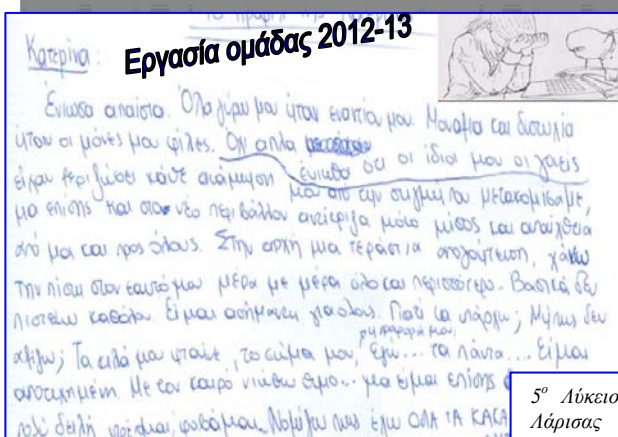 Κατερίνα:
Εργασία ομάδας 2012-13
Ένιωσα απαίσια. Όλα γύρω μου ήταν εναντίον μου. Μοναξιά και δυστυχία
ήταν οι μόνες μου φίλες. Όχι απλά ένιωθα ότι οι ίδιοι μου οι γονείς
είχαν ξεριζώσει κάθε ανάμνηση μου από την στιγμή που μετακομίσαμε,
μα επίσης και στο νέο περιβάλλον αντίκριζα μόνο μίσος και αντιπάθεια
από μα και προς όλους. Στην αρχή μια τεράστια απογοήτευση, χάνω
την πίστη στον εαυτό μου μέρα με μέρα όλο και περισσότερο. Βασικά δεν
πιστεύω καθόλου. Είμαι ασήμαντη για όλους. Γιατί να υπάρχω; Μήπως δεν
αξίζω; Τα κιλά μου φταίνε, το σώμα μου, η συμπεριφορά μου, εγώ... τα πάντα... Είμαι
αποτυχημένη. Με τον καιρό νιώθω θυμό... μα είμαι επίσης
πολύ δειλή, ντρέπομαι, φοβάμαι. Νομίζω πως έχω ΟΛΑ ΤΑ ΚΑΚΑ
5º Λύκειο
Λάρισας